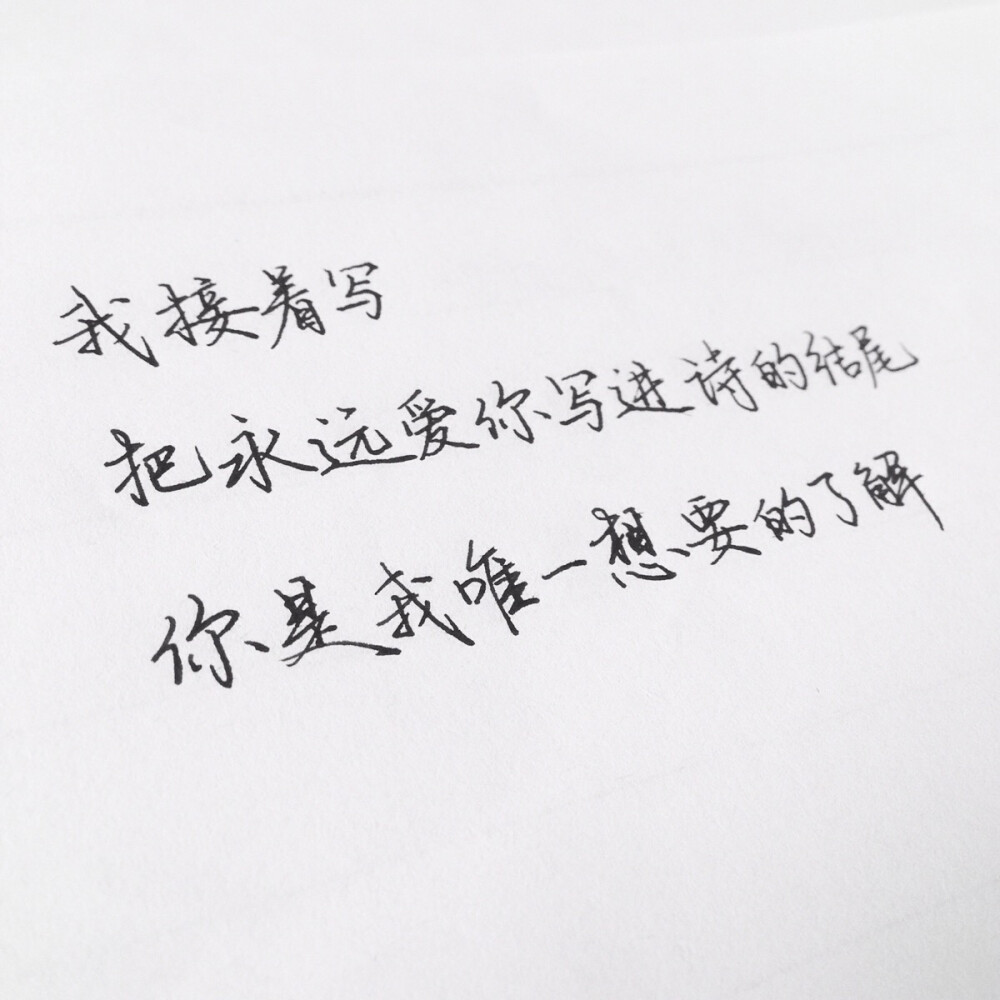 我接着写
把永远爱你写进诗的结尾
你是我唯一想要的了解